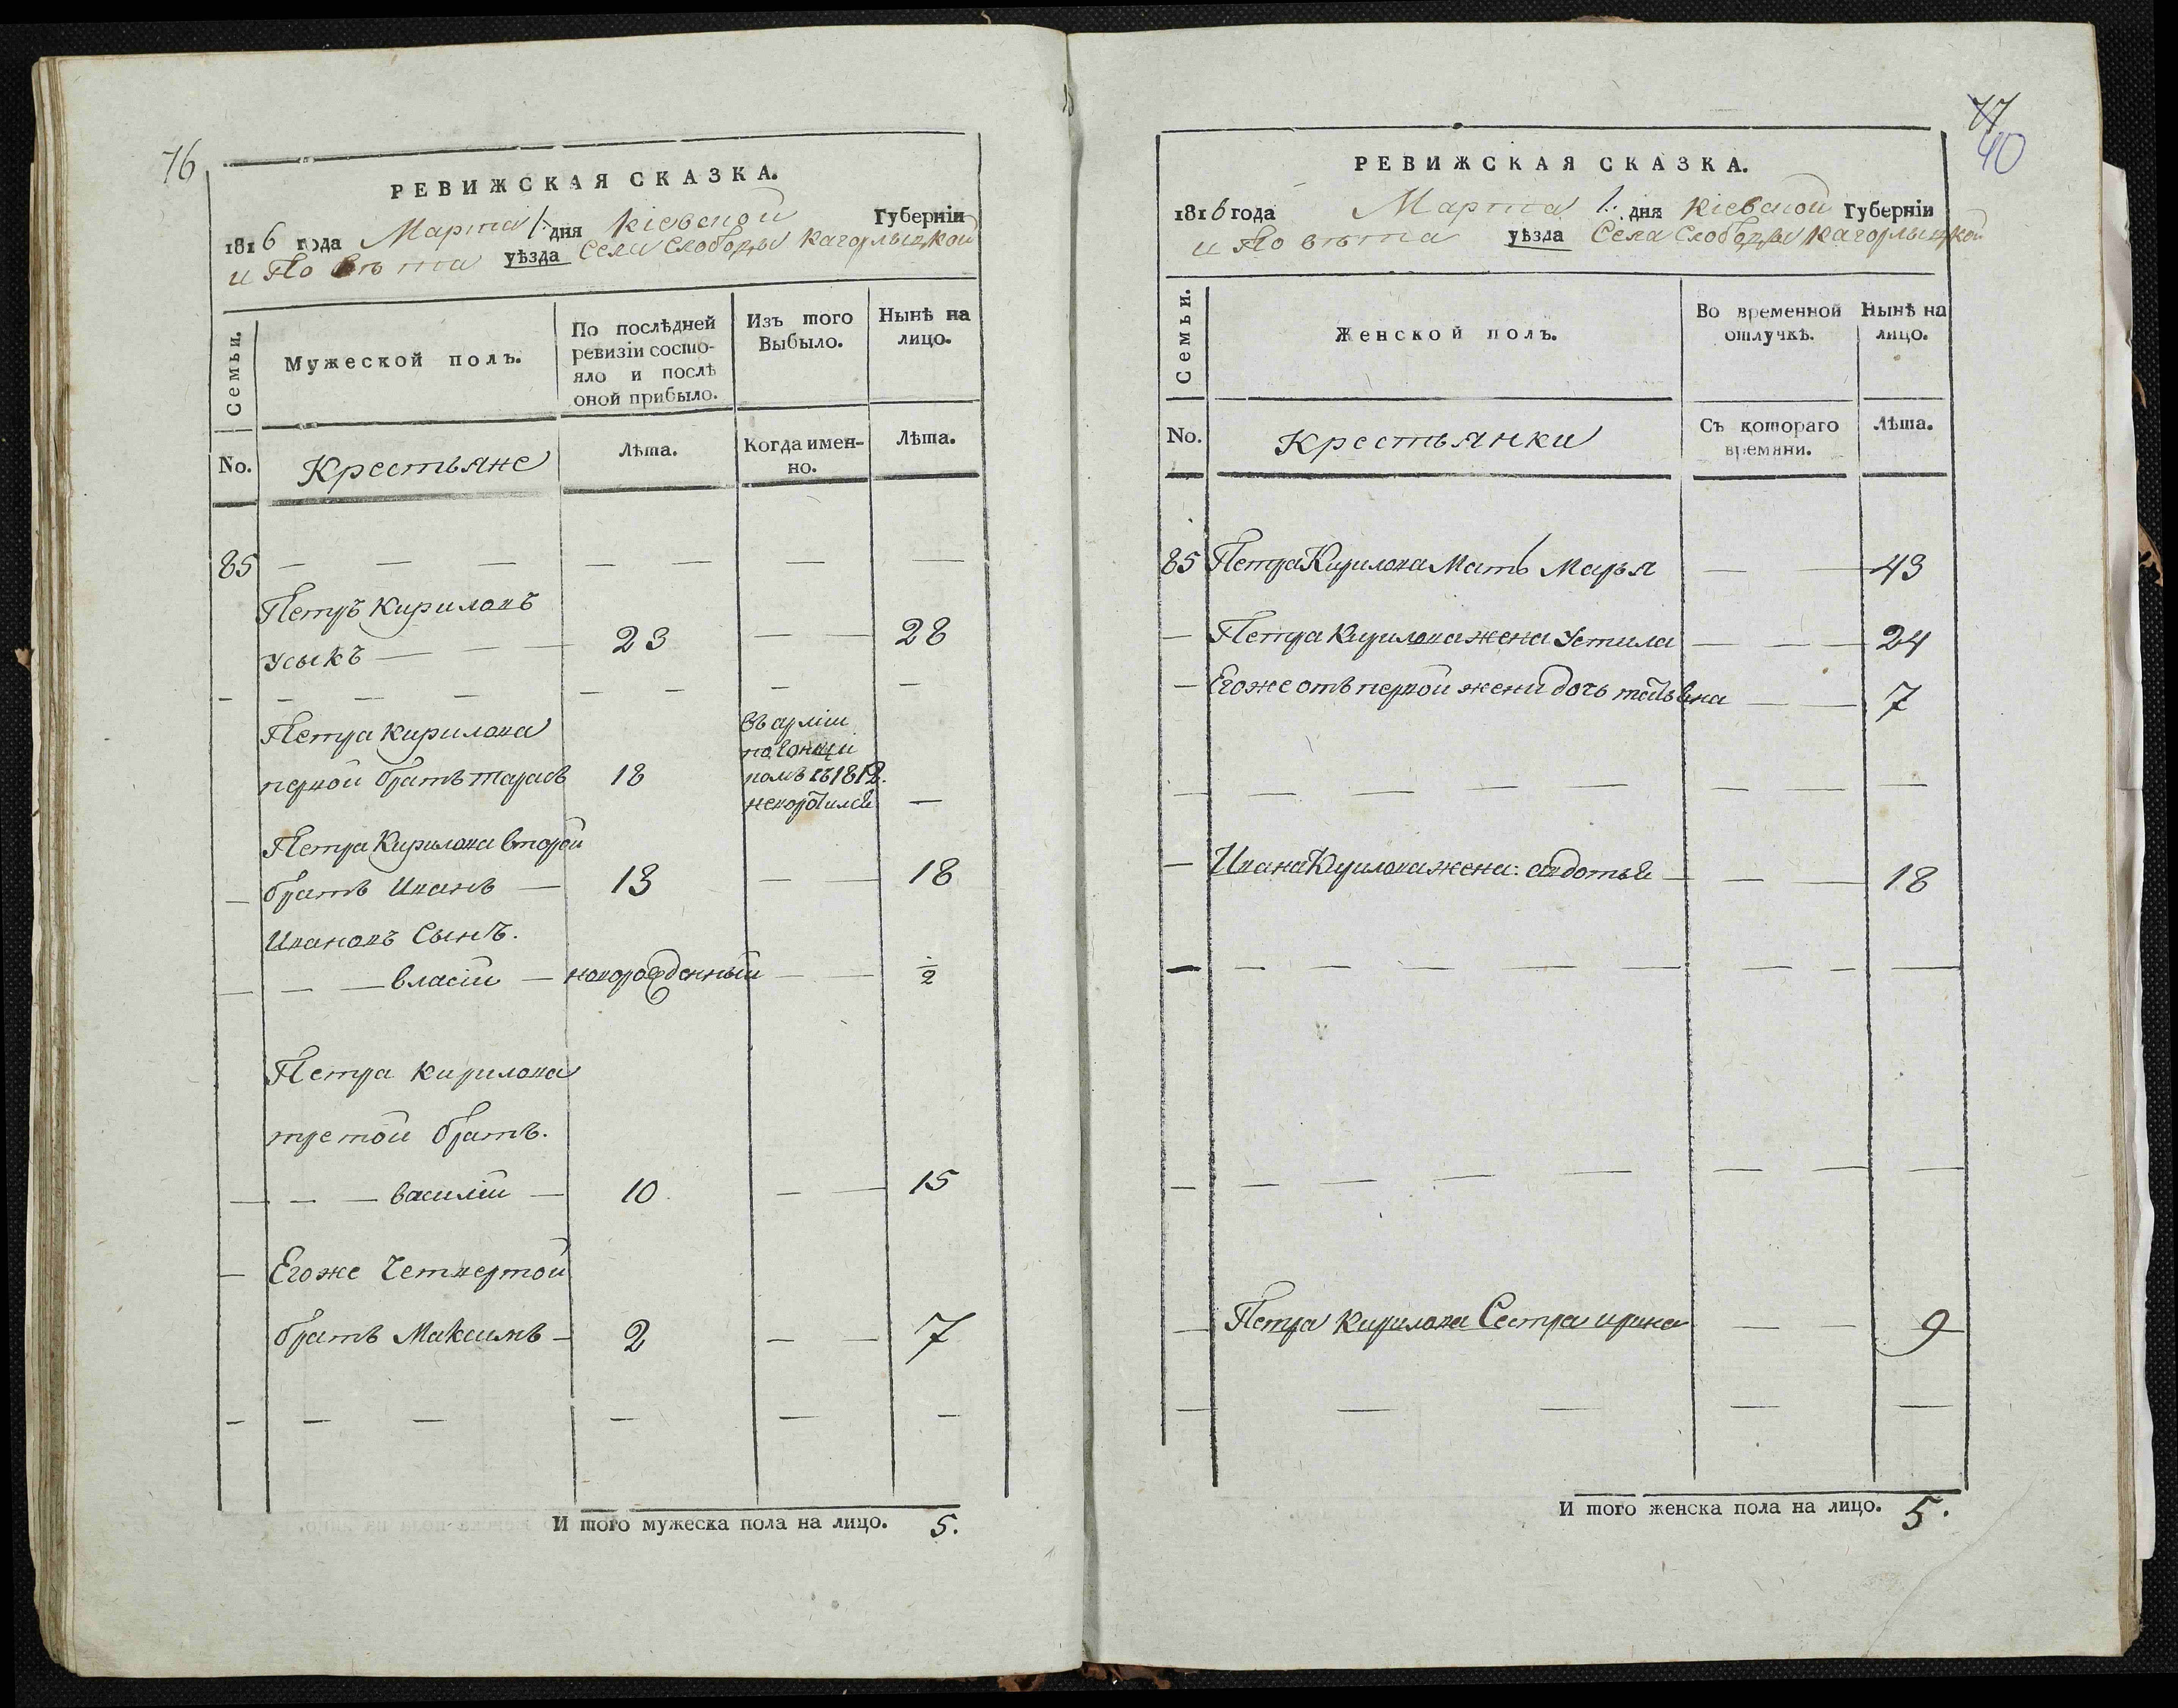 76
РЕВИЖСКАЯ СКАЗКА.
1816 года Марта 1. дня Кіевской Губерніи
и Повѣта уѣзда Села Слободы Кагорлыцкой
Семьи.
Мужеской полъ.
По послѣдней
ревизіи состо-
яло и послѣ
оной прибыло.
Изъ того
Выбыло.
Нынѣ на
лицо.
No.
Крестьяне
Лѣта.
Когда имен-
но.
Лѣта.
85
Петръ Кириловъ
Усыкъ 23 28
Петра Кирилова
первой братъ тарасъ 18
въ арміи
с 1812.
неворотился
Петра Кирилова второй
братъ Иванъ 13 18
Ивановъ Сынъ.
власій новорожденный 1/2
Петра Кирилова
третой братъ.
василій 10 15
Егоже Четвертой
братъ Максимъ 2 7
И того мужеска пола на лицо. 5.
77
40
РЕВИЖСКАЯ СКАЗКА.
1816 года Марта 1. дня Кіевской Губерніи
и Повѣта уѣзда Села Слободы Кагорлыцкой
Семьи.
Женской полъ.
Во временной
отлучкѣ.
Нынѣ на
лицо.
No.
Крестьянки
Съ котораго
времяни.
Лѣта.
85 Петра Кирилова Мать Марья 43
Петра Кирилова жена Устила 24
Егоже отъ первой жени дочь татьяна 7
Ивана Кирилова жена: авдотья 18
Петра Кирилова Сестра ирина 9
И того женска пола на лицо. 5.